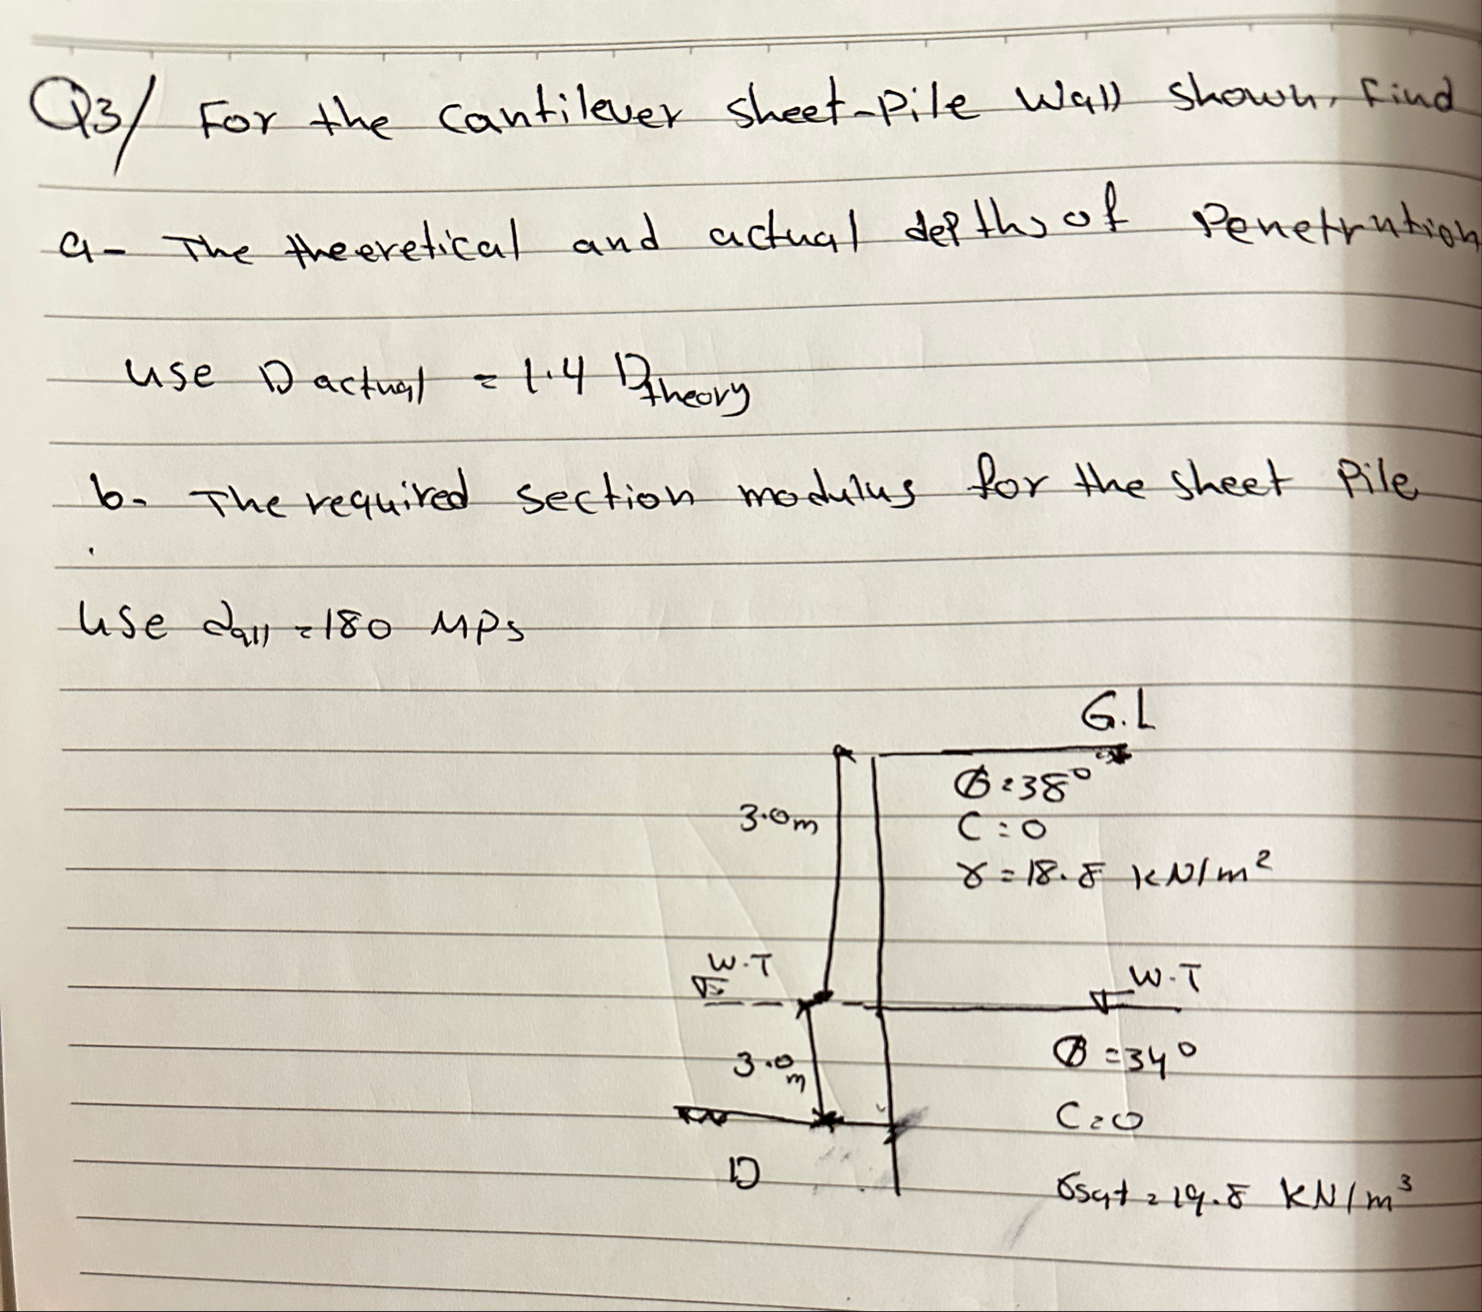 Q3/ For the cantilever sheet-pile wall shown, Find
a- The theeretical and actual depths of Penetrution
use D actual = 1.4 Dtheory
b- The required section modulus for the sheet Pile
use σall = 180 MPs
G.L
Ø = 38°
3.0m
C = 0
γ = 18.8 kN/m²
W.T
W.T
Ø = 34°
3.0m
C = 0
D
σsat = 19.8 kN/m³